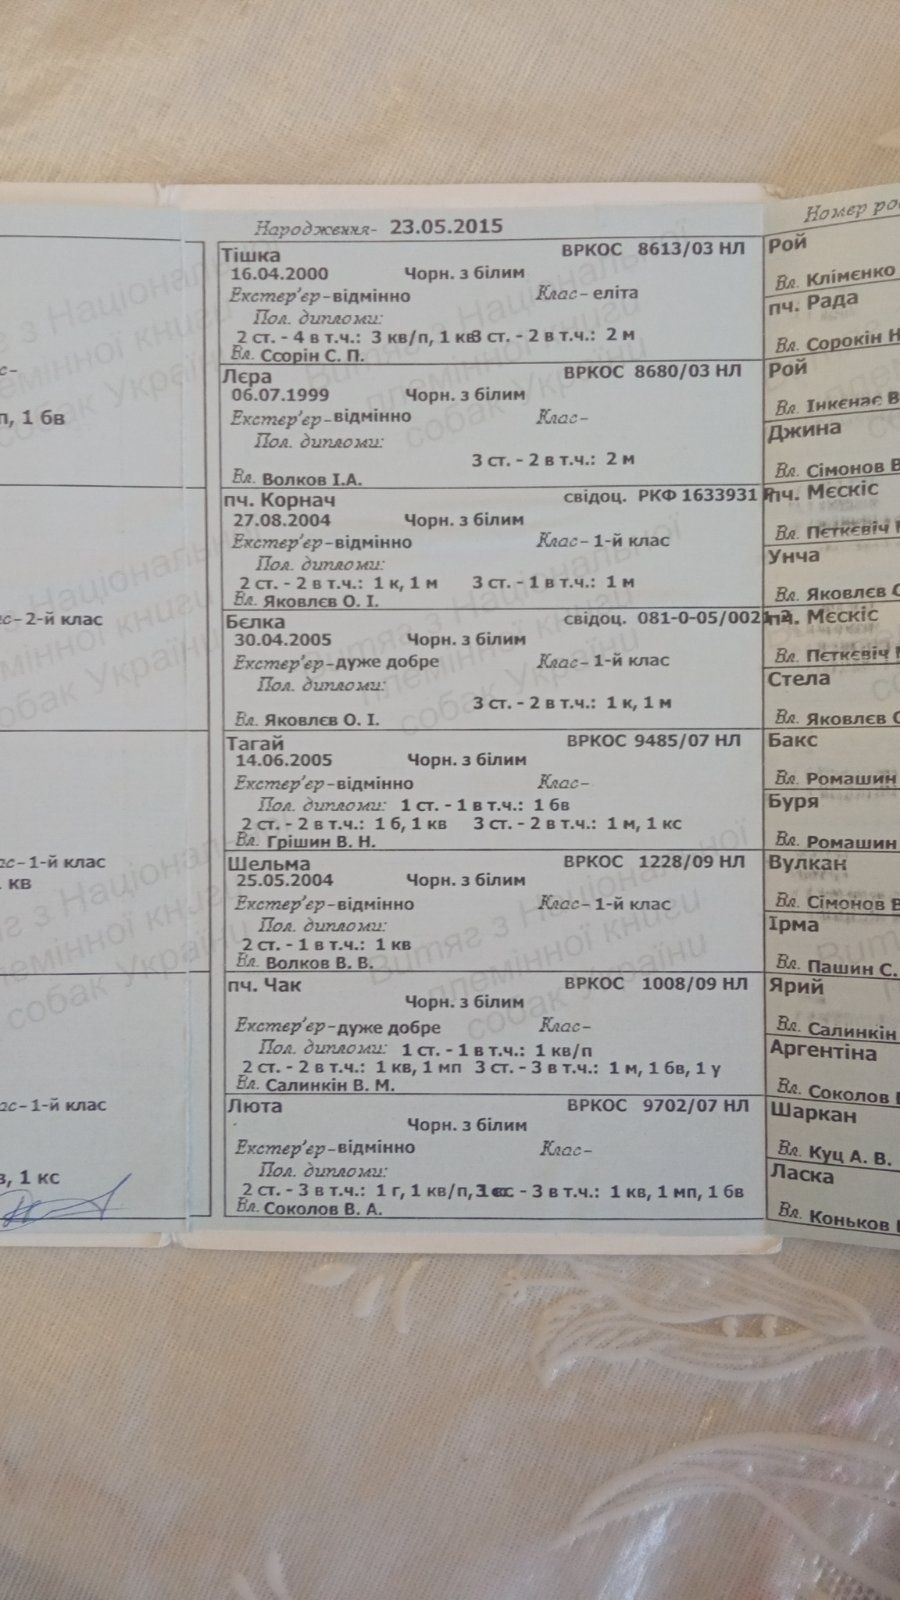 Народження- 23.05.2015
Номер
с-
п, 1 бв
ас- 2-й клас
ас- 1-й клас
кв
ас- 1-й клас
в, 1 кс
Тішка ВРКОС 8613/03 НЛ
16.04.2000 Чорн. з білим
Екстер'єр-відмінно Клас- еліта
Пол. дипломи:
2 ст. - 4 в т.ч.: 3 кв/п, 1 кв 3 ст. - 2 в т.ч.: 2 м
Вл. Ссорін С. П.
Лєра ВРКОС 8680/03 НЛ
06.07.1999 Чорн. з білим
Екстер'єр-відмінно Клас-
Пол. дипломи:
3 ст. - 2 в т.ч.: 2 м
Вл. Волков І.А.
пч. Корнач свідоц. РКФ 1633931
27.08.2004 Чорн. з білим
Екстер'єр-відмінно Клас- 1-й клас
Пол. дипломи:
2 ст. - 2 в т.ч.: 1 к, 1 м 3 ст. - 1 в т.ч.: 1 м
Вл. Яковлєв О. І.
Бєлка свідоц. 081-0-05/0021-2
30.04.2005 Чорн. з білим
Екстер'єр-дуже добре Клас- 1-й клас
Пол. дипломи:
3 ст. - 2 в т.ч.: 1 к, 1 м
Вл. Яковлєв О. І.
Тагай ВРКОС 9485/07 НЛ
14.06.2005 Чорн. з білим
Екстер'єр-відмінно Клас-
Пол. дипломи: 1 ст. - 1 в т.ч.: 1 бв
2 ст. - 2 в т.ч.: 1 б, 1 кв 3 ст. - 2 в т.ч.: 1 м, 1 кс
Вл. Грішин В. Н.
Шельма ВРКОС 1228/09 НЛ
25.05.2004 Чорн. з білим
Екстер'єр-відмінно Клас- 1-й клас
Пол. дипломи:
2 ст. - 1 в т.ч.: 1 кв
Вл. Волков В. В.
пч. Чак ВРКОС 1008/09 НЛ
Чорн. з білим
Екстер'єр-дуже добре Клас-
Пол. дипломи: 1 ст. - 1 в т.ч.: 1 кв/п
2 ст. - 2 в т.ч.: 1 кв, 1 мп 3 ст. - 3 в т.ч.: 1 м, 1 бв, 1 у
Вл. Салинкін В. М.
Люта ВРКОС 9702/07 НЛ
Чорн. з білим
Екстер'єр-відмінно Клас-
Пол. дипломи:
2 ст. - 3 в т.ч.: 1 г, 1 кв/п, - 3 в т.ч.: 1 кв, 1 мп, 1 бв
Вл. Соколов В. А.
Рой
Вл. Клімєнко
пч. Рада
Вл. Сорокін Н
Рой
Вл. Інкєнас В
Джина
Вл. Сімонов В
пч. Мєскіс
Вл. Пєткєвіч
Унча
Вл. Яковлєв О
пч. Мєскіс
Вл. Пєткєвіч
Стела
Вл. Яковлєв О
Бакс
Вл. Ромашин
Буря
Вл. Ромашин
Вулкан
Вл. Сімонов В
Ірма
Вл. Пашин С.
Ярий
Вл. Салинкін
Аргентіна
Вл. Соколов
Шаркан
Вл. Куц А. В.
Ласка
Вл. Коньков
Витяг з Національної
племінної книги
собак України